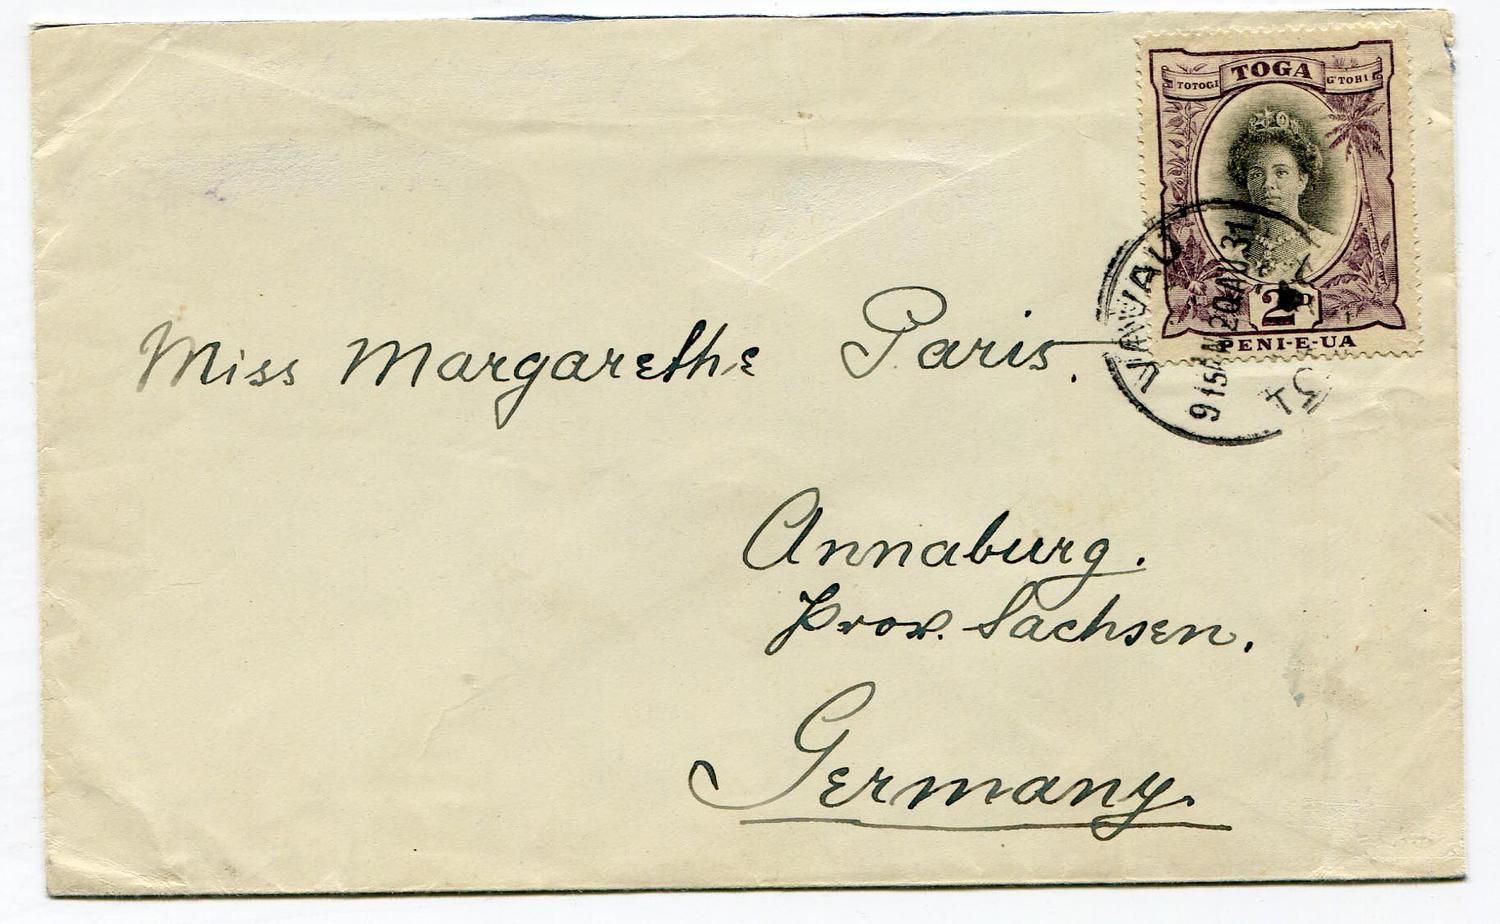 TOTOGI TOGA G'TOBI
2D
PENI-E-UA
VAVAU
915AM 20AU31
Miss Margarethe Paris.
Annaburg.
Prov. Sachsen.
Germany.